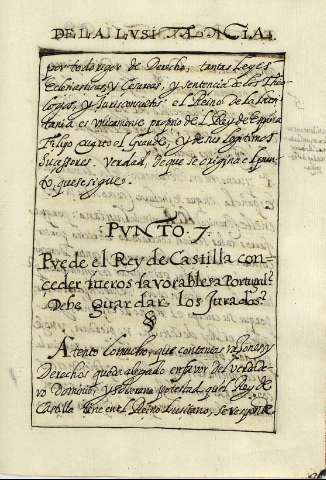 DE LA LUSITANCIA.
por todo rigor de Derecho, tantas Leyes
Eclesiasticas, y Cesareas, y sentencia de los Theo
logos, y Jurisconsultos el Reino de la Lusi
tania es unicamente proprio de el Rey de España
Filipo quarto el Grande, y de sus legitimos
Sucessores. Verdad, de que se origina el pun
to, que se sigue.
PUNTO. 7.
Puede el Rey de Castilla con=
ceder fueros favorables a Portugal
Debe guardar los Jurados?
Atento lo mucho, que con tantas rasones, y
Derechos queda alegado en favor del verdade
ro Dominio, y soberana potestad, que el Rey de
Castilla tiene en el Reino Lusitano, se responde